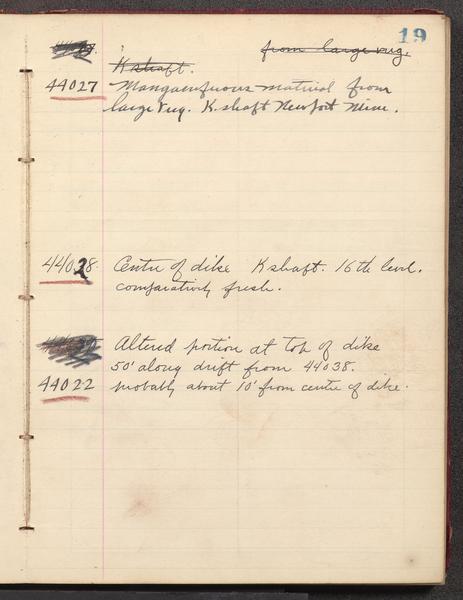 19
from large vug.
K shaft.
44027 Manganiferous material from
large vug. K. shaft Newport Mine.
44028. Centre of dike K shaft. 16th level.
comparatively fresh.
Altered portion at top of dike
50' along drift from 44038.
44022 probably about 10' from centre of dike.